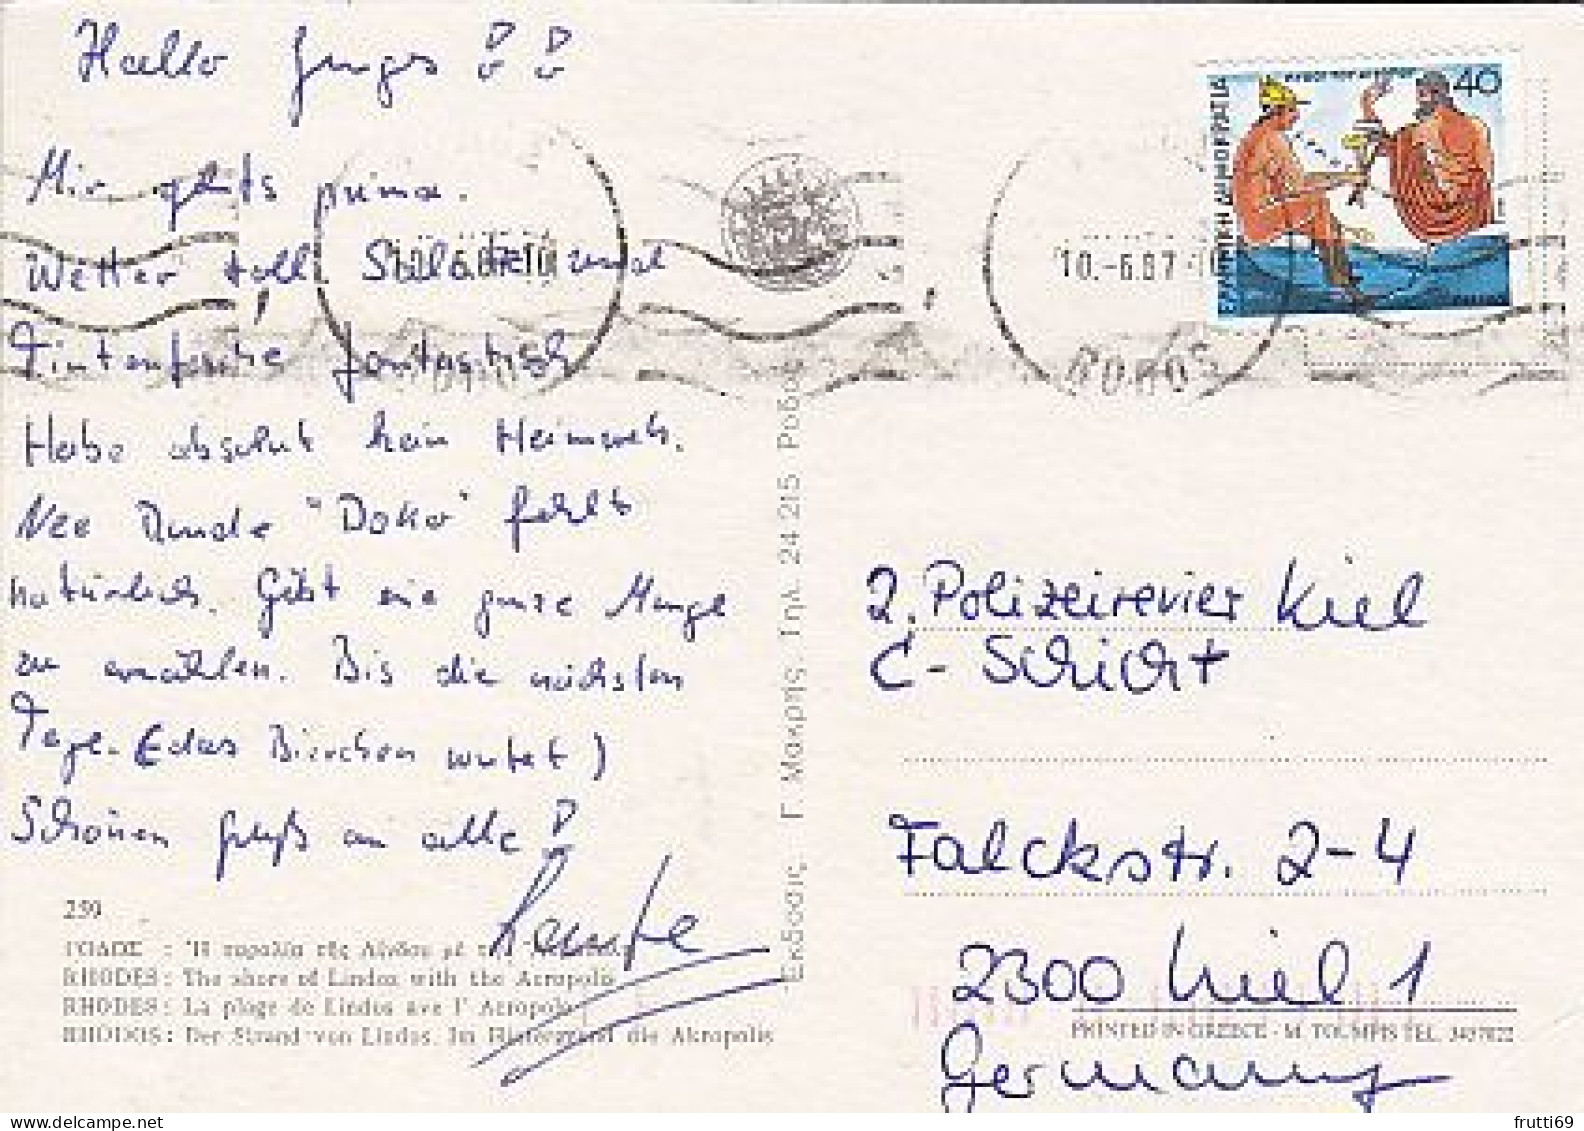 Hallo Jungs !!
Mir gehts prima.
Wetter toll, Salate und
Tintenfische fantastisch
Habe absolut kein Heimweh.
Nee Runde "Doko" fehlt
natürlich. Gibt ne ganze Menge
zu erzählen. Bis die nächsten
Tage. (das Bierchen wartet)
Schönen Gruß an alle!
250
ΡΟΔΟΣ : Ἡ παραλία τῆς Λίνδου μέ
RHODES: The shore of Lindos with the Acropolis
RHODES: La plage de Lindos ave l' Acropole
RHODOS: Der Strand von Lindos. Im Hintergrund die Akropolis
Εκδοσις Γ. Μακρης. Τηλ. 24 215 Ροδος
ΕΛΛΗΝΙΚΗ ΔΗΜΟΚΡΑΤΙΑ
40
10.-6.87
ΡΟΔΟΣ
2. Polizeirevier Kiel
C-Schicht
Falckstr. 2-4
2300 Kiel 1
PRINTED IN GREECE - M. TOUMPIS TEL.
Germany
frutti69